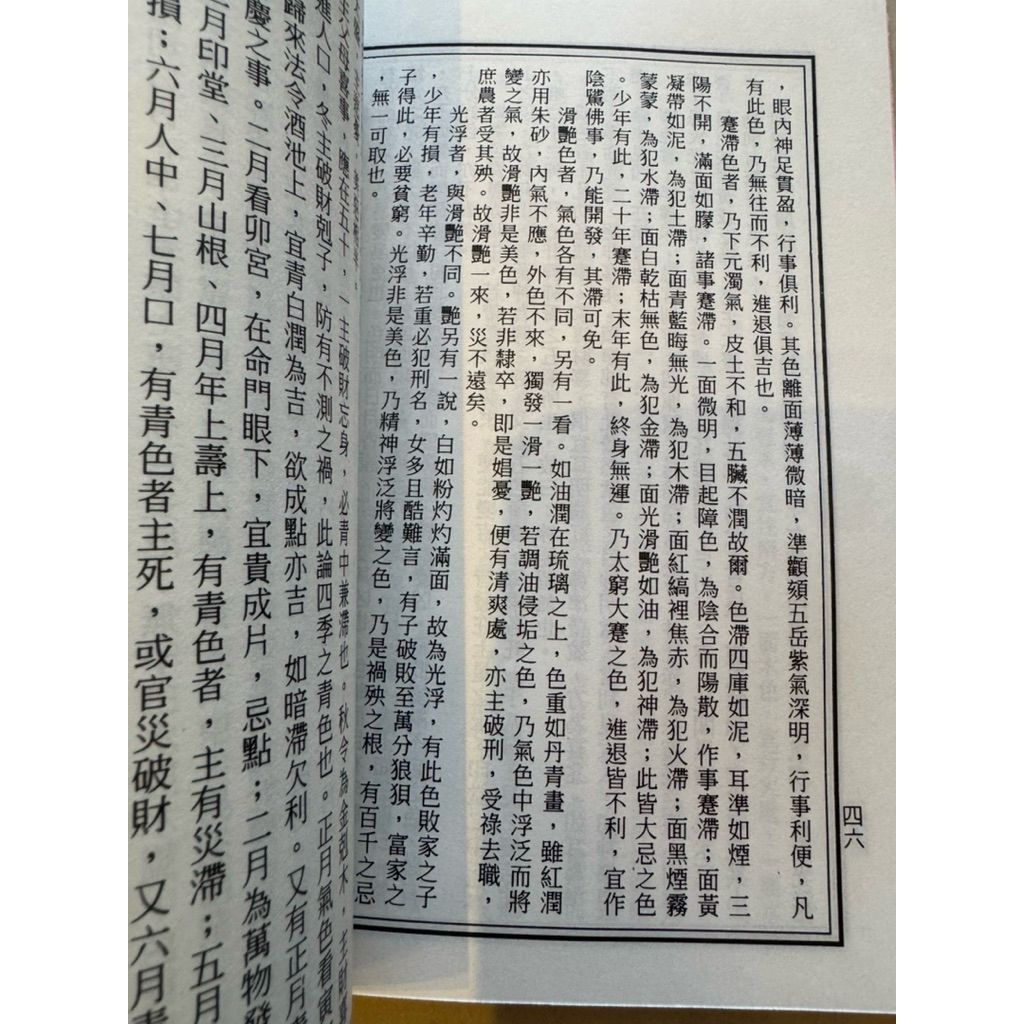 四六
，眼內神足貫盈，行事俱利。其色離面薄薄微暗，準顴頦五岳紫氣深明，行事利便，凡
有此色，乃無往而不利，進退俱吉也。
蹇滯色者，乃下元濁氣，皮土不和，五臟不潤故爾。色滯四庫如泥，耳準如煙，三
陽不開，滿面如朦，諸事蹇滯。一面微明，目起障色，為陰合而陽散，作事蹇滯；面黃
凝帶如泥，為犯土滯；面青藍晦無光，為犯木滯；面紅縞裡焦赤，為犯火滯；面黑煙霧
蒙蒙，為犯水滯；面白乾枯無色，為犯金滯；面光滑艷如油，為犯神滯；此皆大忌之色
。少年有此，二十年蹇滯；末年有此，終身無運。乃太窮大蹇之色，進退皆不利，宜作
陰騭佛事，乃能開發，其滯可免。
滑艷色者，氣色各有不同，另有一看。如油潤在琉璃之上，色重如丹青畫，雖紅潤
亦用朱砂，內氣不應，外色不來，獨發一滑一艷，若調油侵垢之色，乃氣色中浮泛而將
變之氣，故滑艷非是美色，若非隸卒，即是娼憂，便有清爽處，亦主破刑，受祿去職，
庶農者受其殃。故滑艷一來，災不遠矣。
光浮者，與滑艷不同。艷另有一說，白如粉灼灼滿面，故為光浮，有此色敗家之子
，少年有損，老年辛勤，若重必犯刑名，女多且酷難言，有子破敗至萬分狼狽，富家之
子得此，必要貧窮。光浮非是美色，乃精神浮泛將變之色，乃是禍殃之根，有百千之忌
，無一可取也。
主父母喪事，應在五十，一主破財忘身，必青中兼滯也。秋令為金剋木，主財
進人口，冬主破財剋子，防有不測之禍，此論四季之青色也。正月氣色看寅
歸來法令酒池上，宜青白潤為吉，欲成點亦吉，如暗滯欠利。又有正月
慶之事。二月看卯宮，在命門眼下，宜貴成片，忌點；二月為萬物發
月印堂、三月山根、四月年上壽上，有青色者，主有災滯；五月
損；六月人中、七月口，有青色者主死，或官災破財，又六月